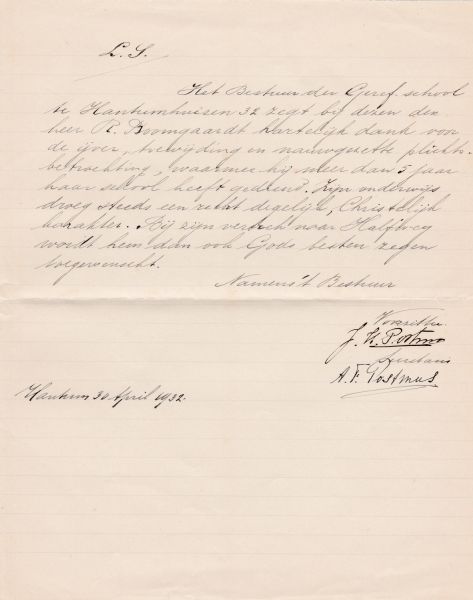 L. S.
Het Bestuur der Geref. school
te Hantumhuizen 32 zegt bij dezen den
heer R. Boomgaardt hartelijk dank voor
de ijver, toewijding en nauwgezette plichts-
betrachting, waarmee hij meer dan 5 jaar
haar school heeft gediend. Zijn onderwijs
droeg steeds een recht degelijk, Christelijk
karakter. Bij zijn vertrek naar Halfweg
wordt hem dan ook Gods besten zegen
toegewenscht.
Namens 't Bestuur
Voorzitter
J. K. Postma
Secretaris
A. F. Postmus
Hantum 30 April 1932.